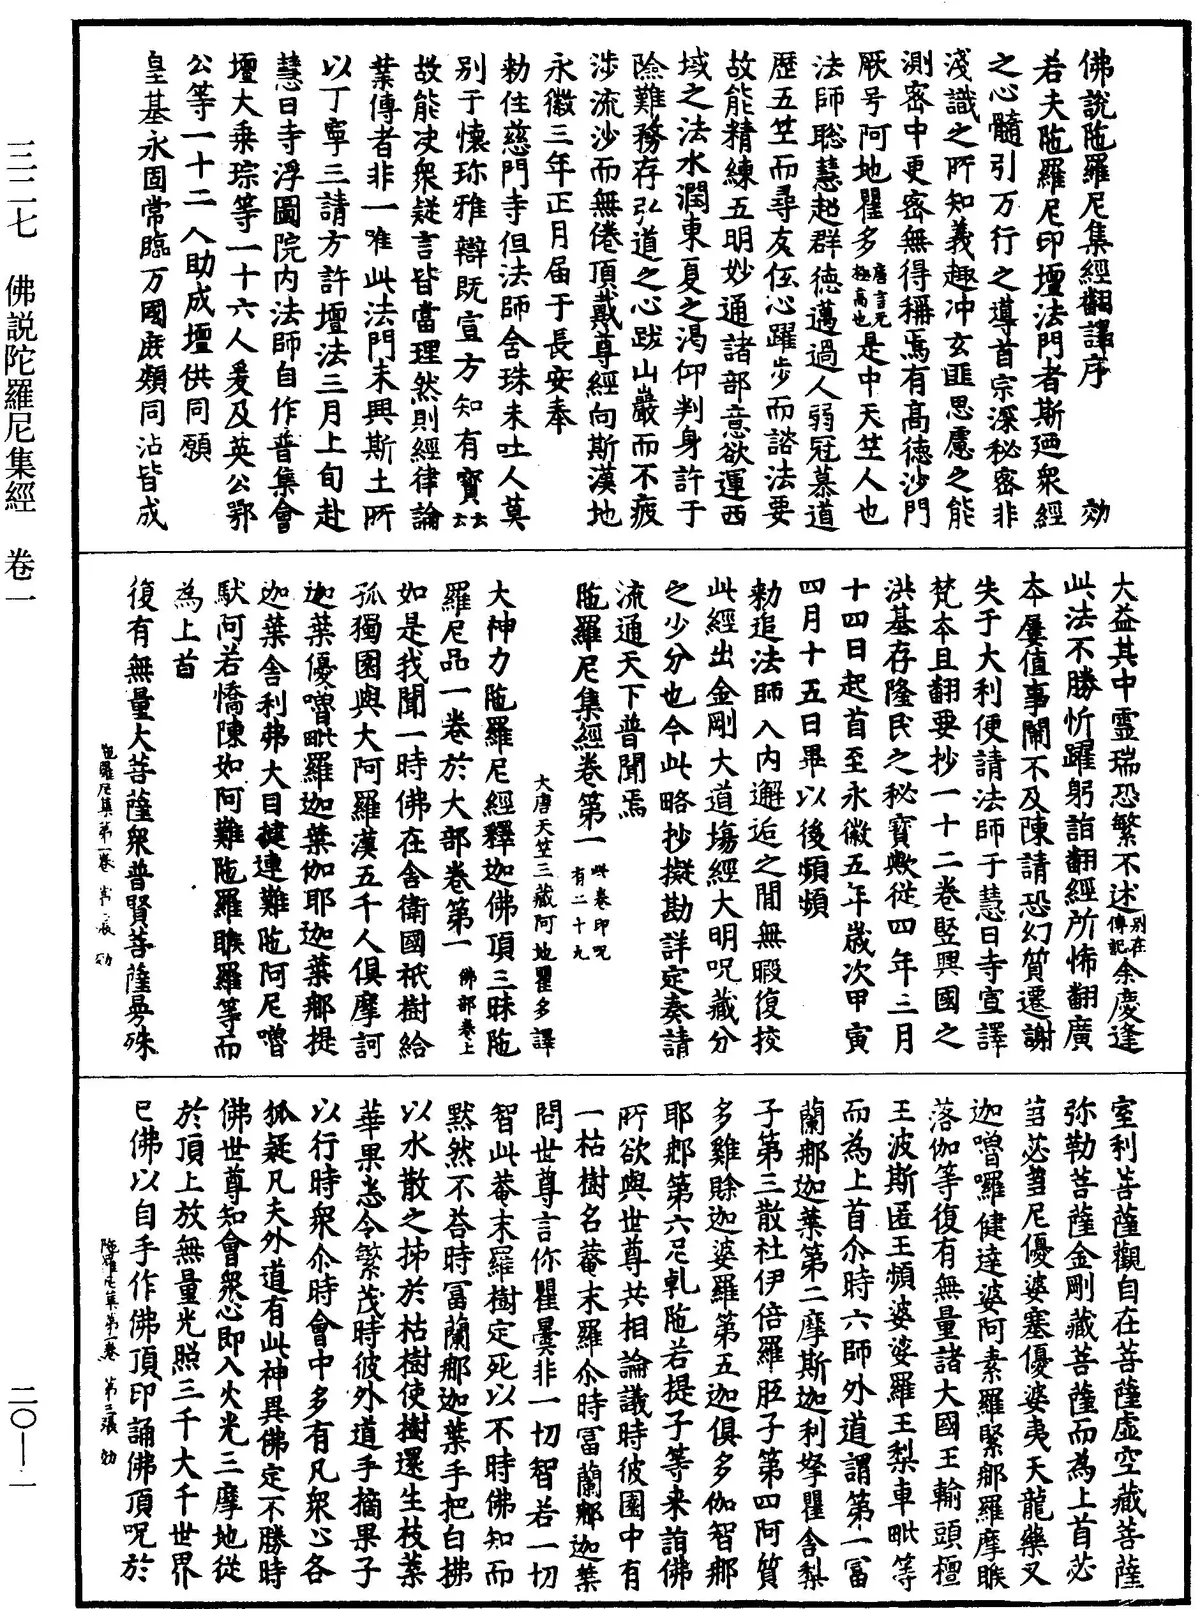 三二七　佛說陀羅尼集經　卷一
二〇—一
佛說陁羅尼集經翻譯序　効
若夫陁羅尼印壇法門者斯迺衆經
之心髓引万行之導首宗深秘密非
淺識之所知義趣冲玄匪思慮之能
測密中更密無得稱焉有髙德沙門
厥号阿地瞿多唐言无極高也是中天竺人也
法師聡慧超群德邁過人弱冠慕道
歷五竺而尋友伍心躍步而諮法要
故能精練五明妙通諸部意欲運西
域之法水潤東夏之渴仰判身許于
險難務存弘道之心跋山巖而不疲
涉流沙而無倦頂戴尊經向斯漢地
永徽三年正月届于長安奉
勑住慈門寺但法師含珠未吐人莫
別于懷珎雅辯既宣方知有寶云云
故能决衆疑言皆當理然則經律論
業傳者非一唯此法門未興斯土所
以丁寧三請方許壇法三月上旬赴
慧日寺浮圖院内法師自作普集會
壇大乗琮等一十六人爰及英公鄂
公等一十二人助成壇供同願
皇基永固常臨万國庻類同沾皆成
大益其中靈瑞恐繁不述別在傳記余慶逢
此法不勝忻躍躬詣翻經所悕翻廣
本屢值事閙不及陳請恐幻質遷謝
失于大利便請法師于慧日寺宣譯
梵本且翻要抄一十二卷竪興國之
洪基存隆民之秘寶歟從四年三月
十四日起首至永徽五年歲次甲寅
四月十五日畢以後頻頻
勑追法師入内邂逅之間無暇復挍
此經出金剛大道塲經大明呪藏分
之少分也今此略抄擬勘詳定奏請
流通天下普聞焉
陁羅尼集經卷第一　此卷印呪有二十九
大唐天竺三藏阿地瞿多譯
大神力陁羅尼經釋迦佛頂三昧陁
羅尼品一卷於大部卷第一　佛部卷上
如是我聞一時佛在舍衛國祇樹給
孤獨園與大阿羅漢五千人俱摩訶
迦葉優嚕毗羅迦葉伽耶迦葉鄉提
迦葉舍利弗大目揵連難陁阿尼嚕
馱阿若憍陳如阿難陁羅睺羅等而
為上首
復有無量大菩薩衆普賢菩薩曼殊
陁羅尼集第一卷　第二張　効
室利菩薩觀自在菩薩虛空藏菩薩
弥勒菩薩金剛藏菩薩而為上首苾
芻苾芻尼優婆塞優婆夷天龍藥叉
迦嚕囉健達婆阿素羅緊鄉羅摩睺
落伽等復有無量諸大國王輸頭檀
王波斯匿王頻婆婆羅王梨車毗等
而為上首尒時六師外道謂第一富
蘭鄉迦葉第二摩斯迦利拏瞿舍梨
子第三散社伊倍羅胝子第四阿質
多雞賖迦婆羅第五迦俱多伽智鄉
耶鄉第六尼軋陁若提子等来詣佛
所欲與世尊共相論議時彼園中有
一枯樹名菴末羅尒時富蘭鄉迦葉
問世尊言你瞿曇非一切智若一切
智此菴末羅樹定死以不時佛知而
黙然不荅時冨蘭鄉迦葉手把白拂
以水散之拂於枯樹使樹還生枝葉
華果悉令繁茂時彼外道手摘果子
以行時衆尒時會中多有凡衆心各
狐疑凡夫外道有此神異佛定不勝時
佛世尊知會衆心即入火光三摩地從
於頂上放無量光照三千大千世界
已佛以自手作佛頂印誦佛頂呪於
陁羅尼集第一卷　第三張　効